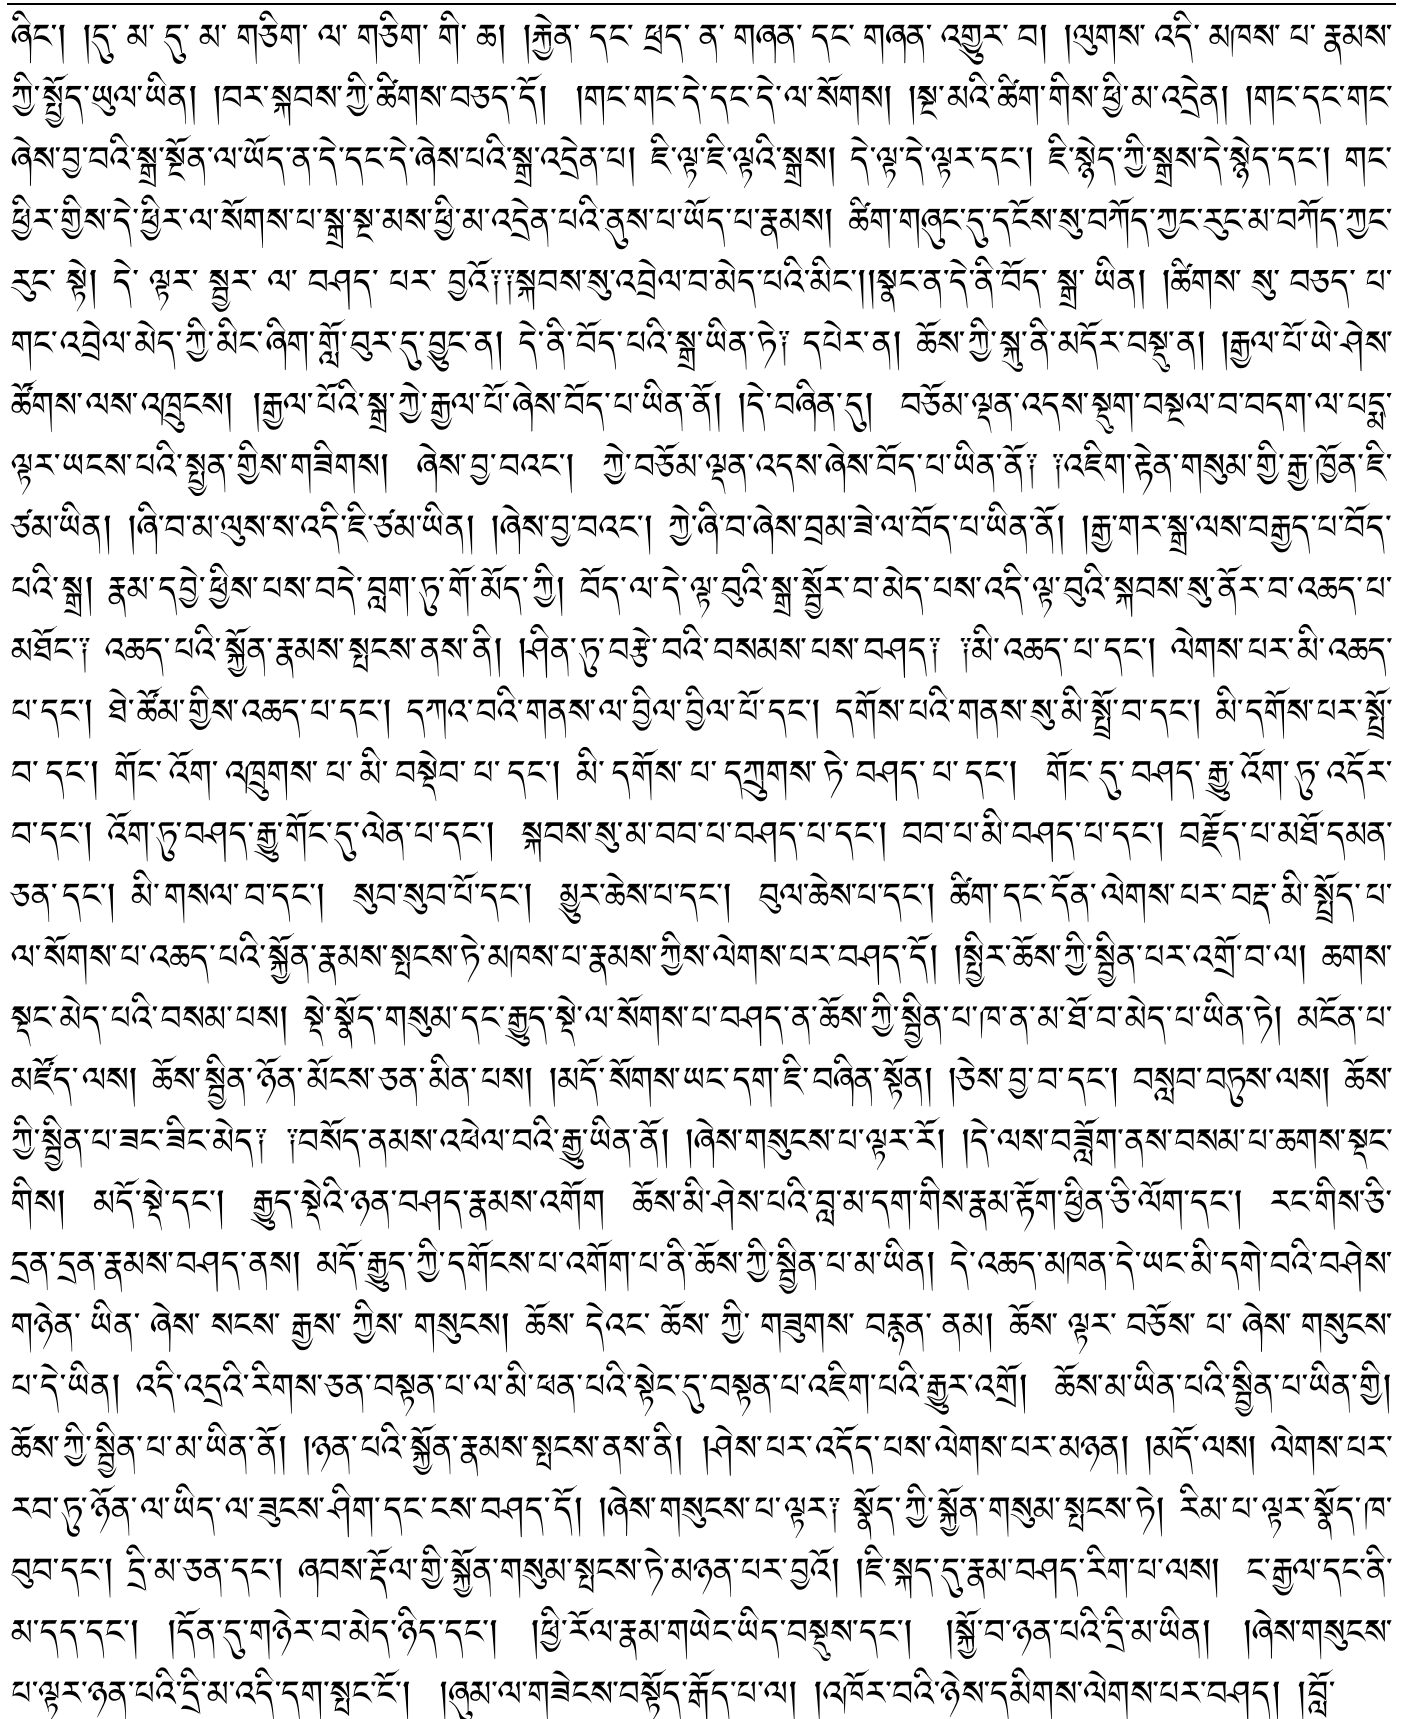 ཞིང་། །དུ་མ་དུ་མ་གཅིག་ལ་གཅིག་གི་ཆ། །རྐྱེན་དང་ཕྲད་ན་གཞན་དང་གཞན་འགྱུར་བ། །ལུགས་འདི་མཁས་པ་རྣམས་
ཀྱི་སྤྱོད་ཡུལ་ཡིན། །བར་སྐབས་ཀྱི་ཚིགས་བཅད་དོ། །གང་གང་དེ་དང་དེ་ལ་སོགས། །སྔ་མའི་ཚིག་གིས་ཕྱི་མ་འདྲེན། །གང་དང་གང་
ཞེས་བྱ་བའི་སྒྲ་སྔོན་ལ་ཡོད་ན་དེ་དང་དེ་ཞེས་པའི་སྒྲ་འདྲེན་པ། ཇི་ལྟ་ཇི་ལྟའི་སྒྲས། དེ་ལྟ་དེ་ལྟར་དང་། ཇི་སྙེད་ཀྱི་སྒྲས་དེ་སྙེད་དང་། གང་
ཕྱིར་གྱིས་དེ་ཕྱིར་ལ་སོགས་པ་སྒྲ་སྔ་མས་ཕྱི་མ་འདྲེན་པའི་ནུས་པ་ཡོད་པ་རྣམས། ཚིག་གཞུང་དུ་དངོས་སུ་བཀོད་ཀྱང་རུང་མ་བཀོད་ཀྱང་
རུང་སྟེ། དེ་ལྟར་སྦྱར་ལ་བཤད་པར་བྱའོ༑༑སྐབས་སུ་འབྲེལ་བ་མེད་པའི་མིང་།།སྣང་ན་དེ་ནི་བོད་སྒྲ་ཡིན། །ཚིགས་སུ་བཅད་པ་
གང་འབྲེལ་མེད་ཀྱི་མིང་ཞིག་གློ་བུར་དུ་བྱུང་ན། དེ་ནི་བོད་པའི་སྒྲ་ཡིན་ཏེ༑ དཔེར་ན། ཆོས་ཀྱི་སྐུ་ནི་མདོར་བསྡུ་ན། །རྒྱལ་པོ་ཡེ་ཤེས་
ཚོགས་ལས་འཁྲུངས། །རྒྱལ་པོའི་སྒྲ་ཀྱེ་རྒྱལ་པོ་ཞེས་བོད་པ་ཡིན་ནོ། །དེ་བཞིན་དུ། བཅོམ་ལྡན་འདས་སྡུག་བསྔལ་བ་བདག་ལ་པདྨ་
ལྟར་ཡངས་པའི་སྤྱན་གྱིས་གཟིགས། ཞེས་བྱ་བའང་། ཀྱེ་བཅོམ་ལྡན་འདས་ཞེས་བོད་པ་ཡིན་ནོ༑ ༑འཇིག་རྟེན་གསུམ་གྱི་རྒྱ་ཁྱོན་ཇི་
ཙམ་ཡིན། །ཞི་བ་མ་ལུས་ས་འདི་ཇི་ཙམ་ཡིན། །ཞེས་བྱ་བའང་། ཀྱེ་ཞི་བ་ཞེས་བྲམ་ཟེ་ལ་བོད་པ་ཡིན་ནོ། །རྒྱ་གར་སྒྲ་ལས་བརྒྱད་པ་བོད་
པའི་སྒྲ། རྣམ་དབྱེ་ཕྱིས་པས་བདེ་བླག་ཏུ་གོ་མོད་ཀྱི། བོད་ལ་དེ་ལྟ་བུའི་སྒྲ་སྦྱོར་བ་མེད་པས་འདི་ལྟ་བུའི་སྐབས་སུ་ནོར་བ་འཆད་པ་
མཐོང་༑ འཆད་པའི་སྐྱོན་རྣམས་སྤངས་ནས་ནི། །ཤིན་ཏུ་བརྩེ་བའི་བསམས་པས་བཤད༑ ༑མི་འཆད་པ་དང་། ལེགས་པར་མི་འཆད་
པ་དང་། ཐེ་ཚོམ་གྱིས་འཆད་པ་དང་། དཀའ་བའི་གནས་ལ་བྱིལ་བྱིལ་པོ་དང་། དགོས་པའི་གནས་སུ་མི་སྤྲོ་བ་དང་། མི་དགོས་པར་སྤྲོ་
བ་དང་། གོང་འོག་འཁྲུགས་པ་མི་བསྡེབ་པ་དང་། མི་དགོས་པ་དཀྲུགས་ཏེ་བཤད་པ་དང་། གོང་དུ་བཤད་རྒྱུ་འོག་ཏུ་འདོར་
བ་དང་། འོག་ཏུ་བཤད་རྒྱུ་གོང་དུ་ལེན་པ་དང་། སྐབས་སུ་མ་བབ་པ་བཤད་པ་དང་། བབ་པ་མི་བཤད་པ་དང་། བརྗོད་པ་མཐོ་དམན་
ཅན་དང་། མི་གསལ་བ་དང་། སུབ་སུབ་པོ་དང་། མྱུར་ཆེས་པ་དང་། བུལ་ཆེས་པ་དང་། ཚིག་དང་དོན་ལེགས་པར་བརྡ་མི་སྤྲོད་པ་
ལ་སོགས་པ་འཆད་པའི་སྐྱོན་རྣམས་སྤངས་ཏེ་མཁས་པ་རྣམས་ཀྱིས་ལེགས་པར་བཤད་དོ། །སྤྱིར་ཆོས་ཀྱི་སྦྱིན་པར་འགྲོ་བ་ལ། ཆགས་
སྡང་མེད་པའི་བསམ་པས། སྡེ་སྣོད་གསུམ་དང་རྒྱུད་སྡེ་ལ་སོགས་པ་བཤད་ན་ཆོས་ཀྱི་སྦྱིན་པ་ཁ་ན་མ་ཐོ་བ་མེད་པ་ཡིན་ཏེ། མངོན་པ་
མཛོད་ལས། ཆོས་སྦྱིན་ཉོན་མོངས་ཅན་མིན་པས། །མདོ་སོགས་ཡང་དག་ཇི་བཞིན་སྟོན། །ཅེས་བྱ་བ་དང་། བསླབ་བཏུས་ལས། ཆོས་
ཀྱི་སྦྱིན་པ་ཟང་ཟིང་མེད༑ ༑བསོད་ནམས་འཕེལ་བའི་རྒྱུ་ཡིན་ནོ། །ཞེས་གསུངས་པ་ལྟར་རོ། །དེ་ལས་བཟློག་ནས་བསམ་པ་ཆགས་སྡང་
གིས། མདོ་སྡེ་དང་། རྒྱུད་སྡེའི་ཉན་བཤད་རྣམས་འགོག ཆོས་མི་ཤེས་པའི་བླ་མ་དག་གིས་རྣམ་རྟོག་ཕྱིན་ཅི་ལོག་དང་། རང་གིས་ཅི་
དྲན་དྲན་རྣམས་བཤད་ནས། མདོ་རྒྱུད་ཀྱི་དགོངས་པ་འགོག་པ་ནི་ཆོས་ཀྱི་སྦྱིན་པ་མ་ཡིན། དེ་འཆད་མཁན་དེ་ཡང་མི་དགེ་བའི་བཤེས་
གཉེན་ཡིན་ཞེས་སངས་རྒྱས་ཀྱིས་གསུངས། ཆོས་དེའང་ཆོས་ཀྱི་གཟུགས་བརྙན་ནམ། ཆོས་ལྟར་བཅོས་པ་ཞེས་གསུངས་
པ་དེ་ཡིན། འདི་འདྲའི་རིགས་ཅན་བསྟན་པ་ལ་མི་ཕན་པའི་སྟེང་དུ་བསྟན་པ་འཇིག་པའི་རྒྱུར་འགྲོ། ཆོས་མ་ཡིན་པའི་སྦྱིན་པ་ཡིན་གྱི།
ཆོས་ཀྱི་སྦྱིན་པ་མ་ཡིན་ནོ། །ཉན་པའི་སྐྱོན་རྣམས་སྤངས་ནས་ནི། །ཤེས་པར་འདོད་པས་ལེགས་པར་མཉན། །མདོ་ལས། ལེགས་པར་
རབ་ཏུ་ཉོན་ལ་ཡིད་ལ་ཟུངས་ཤིག་དང་ངས་བཤད་དོ། །ཞེས་གསུངས་པ་ལྟར༑ སྣོད་ཀྱི་སྐྱོན་གསུམ་སྤངས་ཏེ། རིམ་པ་ལྟར་སྣོད་ཁ་
བུབ་དང་། དྲི་མ་ཅན་དང་། ཞབས་རྡོལ་གྱི་སྐྱོན་གསུམ་སྤངས་ཏེ་མཉན་པར་བྱའོ། །ཇི་སྐད་དུ་རྣམ་བཤད་རིག་པ་ལས། ང་རྒྱལ་དང་ནི་
མ་དད་དང་། །དོན་དུ་གཉེར་བ་མེད་ཉིད་དང་། །ཕྱི་རོལ་རྣམ་གཡེང་ཡིད་བསྡུས་དང་། །སྐྱོ་བ་ཉན་པའི་དྲི་མ་ཡིན། །ཞེས་གསུངས་
པ་ལྟར་ཉན་པའི་དྲི་མ་འདི་དག་སྤང་ངོ་། །ཞུམ་ལ་གཟེངས་བསྟོད་རྒོད་པ་ལ། །འཁོར་བའི་ཉེས་དམིགས་ལེགས་པར་བཤད། །བློ་